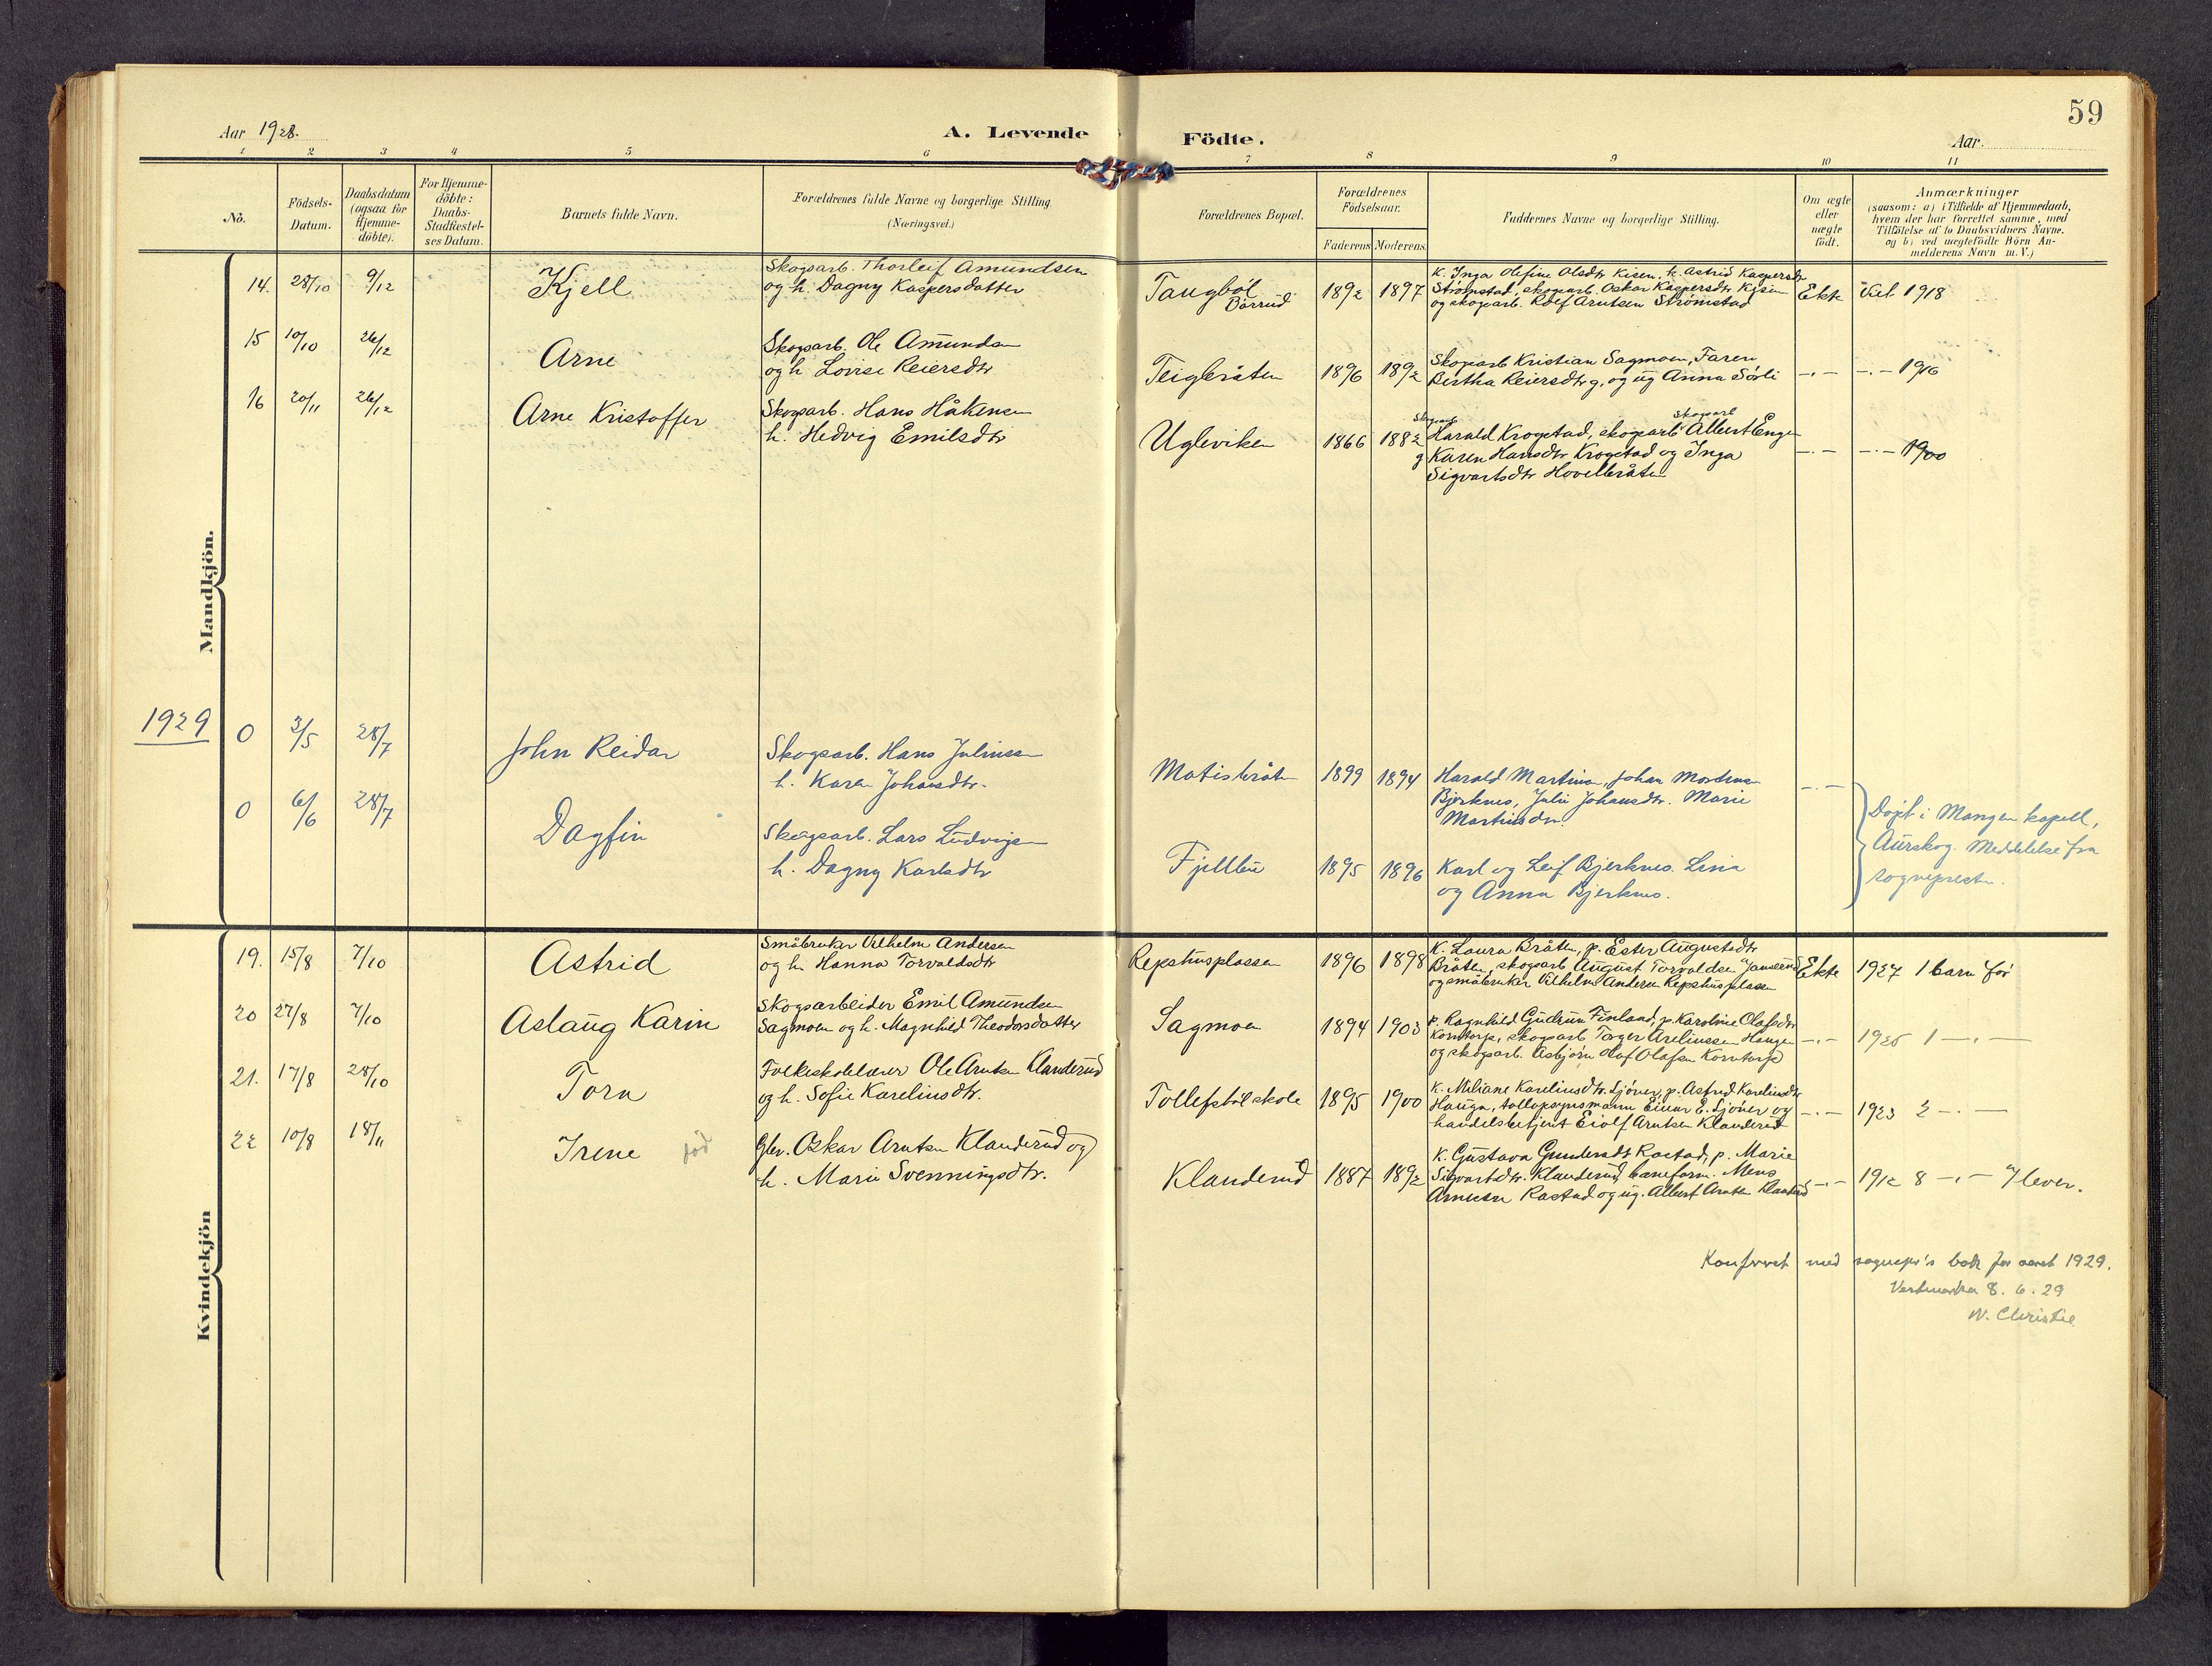 59
Aar 1928.
A. Levende
Födte.
Aar.
1 2 3 4 5 6 7 8 9 10 11
No.
Födsels-
Datum.
Daabsdatum
(ogsaa for
Hjemme-
döbte).
For Hjemme-
döbte:
Daabs-
Stadfæstel-
ses Datum.
Barnets fulde Navn.
Forældrenes fulde Navne og borgerlige Stilling.
(Næringsvei.)
Forældrenes Bopæl.
Forældrenes
Födselsaar.
Faderens Moderens.
Faddernes Navne og borgerlige Stilling.
Om ægte
eller
uægte
födt.
Anmærkninger
(saasom: a) i Tilfælde af Hjemmedaab,
hvem der har forrettet samme, med
Tilföielse af to Daabsvidners Navne.
og b) ved uægtefödte Börn An-
melderens Navn m. V.)
Mandkjön.
14. 28/10 9/12
Kjell
Skogsarb. Thorleif Amundsen
og h. Dagny Kaspersdatter
Taugböl
Börrud
1892 1897
K. Inga Olefine Olsdtr Kisen, k. Astrid Kaspersdtr
Strömstad, skogsarb. Oskar Kaspersdtr Kisen
og skogsarb. Rolf Arntsen Strömstad
Ekte
Viet 1918
15 10/10 26/12
Arne
Skogsarb. Ole Amundsen
og h. Lovise Reiersdtr
Teigbråten
1896 1892
Skogsarb Kristian Sagmoen, Faren
Bertha Reiersdtr g. og ug Anna Sörli
-.- -.- 1916
16 20/11 26/12
Arne Kristoffer
Skogsarb. Hans Håkensen
h. Hedvig Emilsdtr
Ugleviken
1866 1882
Skogsarb skogsarb
Harald Krogstad, skogsarb Albert Engen
g Karen Hansdtr Krogstad og Inga
Sigvartsdtr Hovelbråten
-.- -.- 1900
1929
0 3/5 28/7
John Reidar
Skogsarb. Hans Juliussen
h. Karen Johansdtr.
Matisbråten
1899 1894
Harald Martinsen, Johan Mortensen
Bjerknes, Julie Johansdtr. Marie
Martinsdtr.
-.-
0 6/6 28/7
Dagfin
Skogsarb. Lars Ludvigsen
h. Dagny Karlsdtr
Fjellbu
1895 1896
Karl og Leif Bjerknes. Lina
og Anna Bjerknes.
Döpt i Mangen kapell,
Aurskog. Meddelelse fra
sogneprest.
Kvindekjön
19. 15/8 7/10
Astrid
Småbruker Vilhelm Andersen
og h. Hanna Torvaldsdtr
Repshusplassen
1896 1898
K. Laura Bråten, p. Ester Augustsdtr
Bråten, skogsarb. August Torvaldsen
og småbruker Vilhelm Andersen Repshusplassen
Ekte
1927 1 barn för
20 27/8 7/10
Aslaug Karin
Skogsarbeider Emil Amundsen
Sagmoen og h. Magnhild Theodorsdatter
Sagmoen
1894 1903
p. Ragnhild Gudrun Finland, p. Karoline Olafsdtr
Korntorp, skogsarb Torger Areliussen Haugen
og skogsarb. Asbjörn Olaf Olafsen Korntorp
-.-
1926 1 -.-
21. 17/8 28/10
Tora
Folkeskolelærer Ole Arntsen Klanderud
og h. Sofie Kareliusdtr.
Tollefsböl skole
1895 1900
K. Miliane Kareliusdtr. Sjöner, p. Astrid Kareliusdtr
Hauga, tollopsynsmann Einar E. Sjöner og
handelsbetjent Eiolf Arntsen Klanderud
-.-
1923 2 -.-
22 10/8 18/11
Irene
föd
Gbr. Oskar Arntsen Klanderud og
h. Marie Svenningsdtr.
Klanderud
1887 1892
K. Gustava Gundersdtr Rastad, p. Marie
Sigvartsdtr. Klanderud, baneform. Mens
Arnesen Rastad og ug. Albert Arntsen Klanderud
-.-
1912 8 -.- 7 lever.
Konferert med sognepr's bok for aaret 1929.
Vestmarka 8.6.29
W. Christie